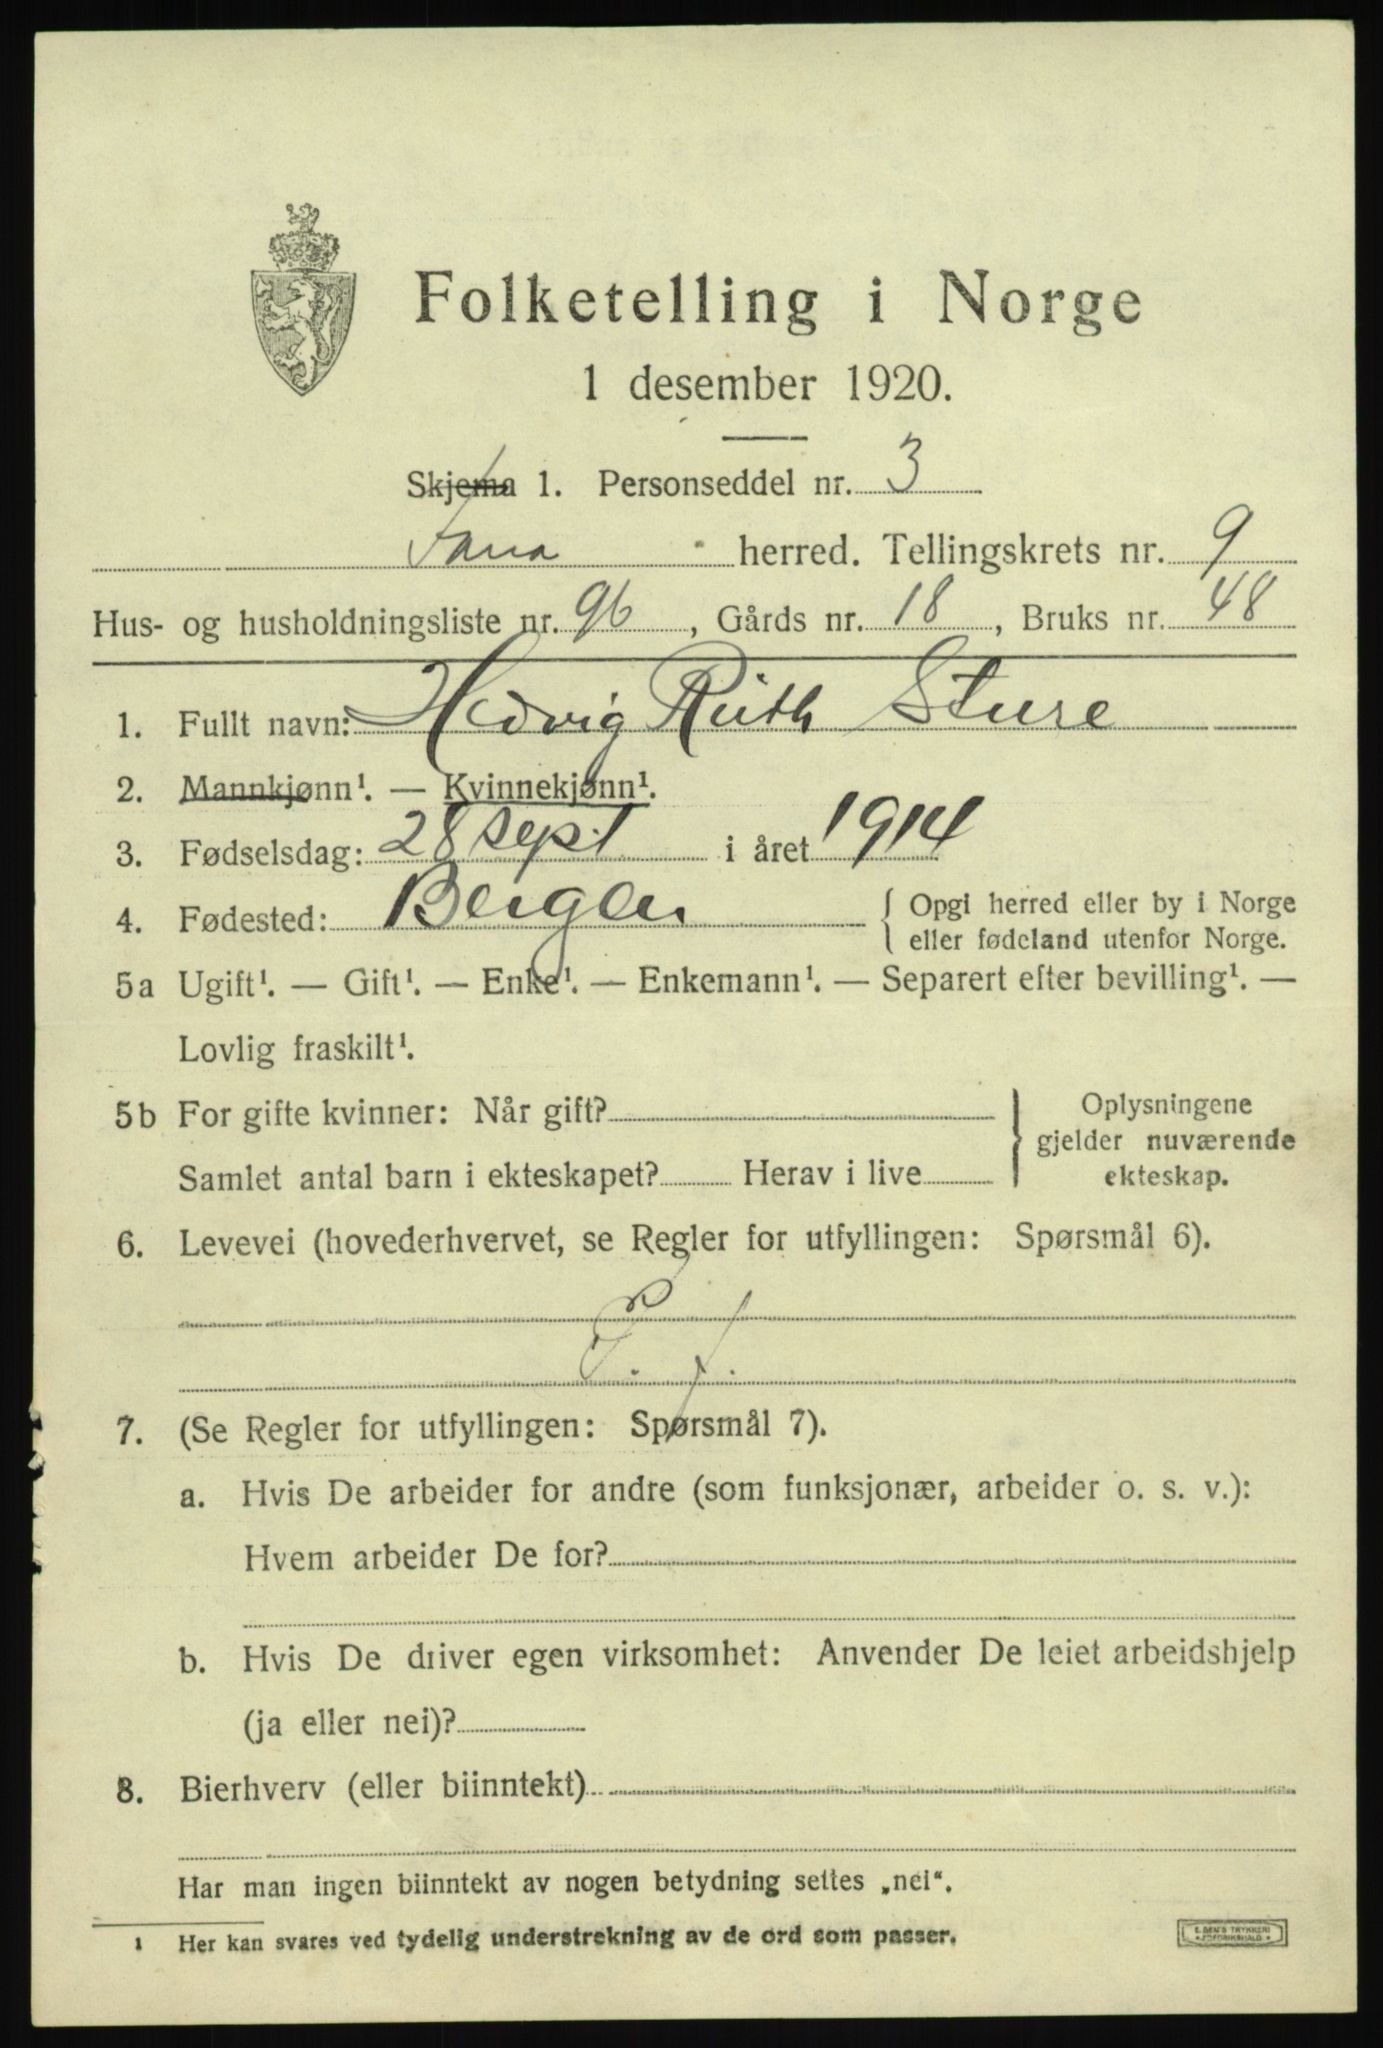 Folketelling i Norge
1 desember 1920.
Skjema 1. Personseddel nr. 3
Fana herred. Tellingskrets nr. 9
Hus- og husholdningsliste nr. 96, Gårds nr. 18, Bruks nr. 48
1. Fullt navn: Hedvig Ruth Sture
2. Mannkjønn¹. — Kvinnekjønn¹.
3. Fødselsdag: 28 sept i året 1914
4. Fødested: Bergen { Opgi herred eller by i Norge
eller fødeland utenfor Norge.
5a Ugift¹. — Gift¹. — Enke¹. — Enkemann¹. — Separert efter bevilling¹. —
Lovlig fraskilt¹.
5b For gifte kvinner: Når gift? } Oplysningene
gjelder nuværende
Samlet antal barn i ekteskapet? Herav i live ekteskap.
6. Levevei (hovederhvervet, se Regler for utfyllingen: Spørsmål 6).
7. (Se Regler for utfyllingen: Spørsmål 7).
a. Hvis De arbeider for andre (som funksjonær, arbeider o. s. v.):
Hvem arbeider De for?
b. Hvis De driver egen virksomhet: Anvender De leiet arbeidshjelp
(ja eller nei)?
8. Bierhverv (eller biinntekt)
Har man ingen biinntekt av nogen betydning settes „nei“.
1 Her kan svares ved tydelig understrekning av de ord som passer.